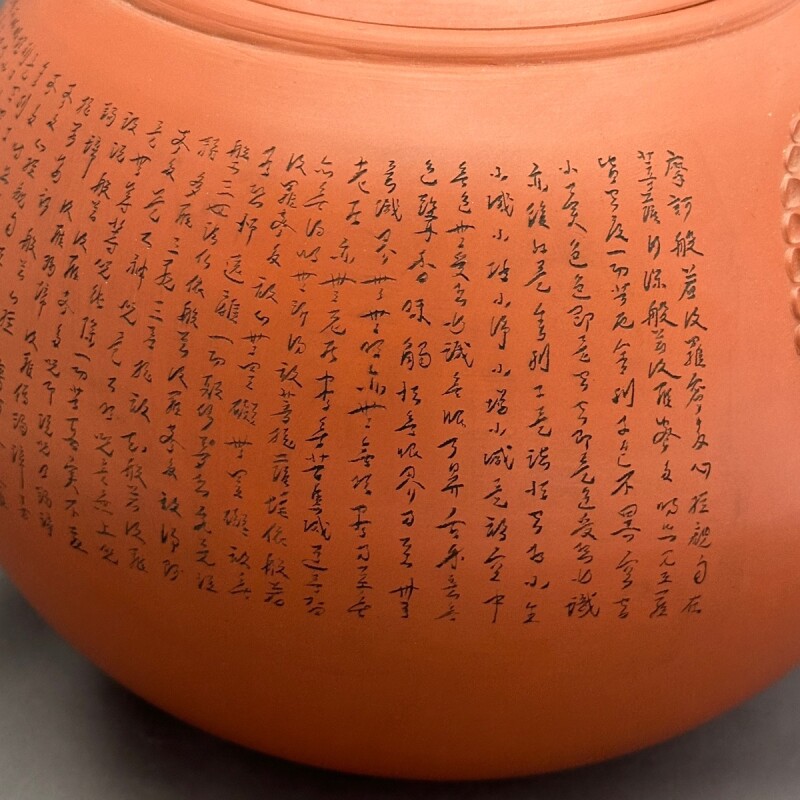 摩訶般若波羅蜜多心經觀自在
菩薩行深般若波羅蜜多時照見五蘊
皆空度一切苦厄舍利子色不異空空
不異色色即是空空即是色受想行識
亦復如是舍利子是諸法空相不生
不滅不垢不淨不增不減是故空中
無色無受想行識無眼耳鼻舌身意無
色聲香味觸法無眼界乃至無
意識界無無明亦無無明盡乃至無
老死亦無老死盡無苦集滅道無智
亦無得以無所得故菩提薩埵依般若
波羅蜜多故心無罣礙無罣礙故無
有恐怖遠離一切顛倒夢想究竟涅
槃三世諸佛依般若波羅蜜多故得阿
耨多羅三藐三菩提故知般若波羅
蜜多是大神咒是大明咒是無上咒
是無等等咒能除一切苦真實不虛
故說般若波羅蜜多咒即說咒曰揭諦
揭諦般羅揭諦波羅僧揭諦菩